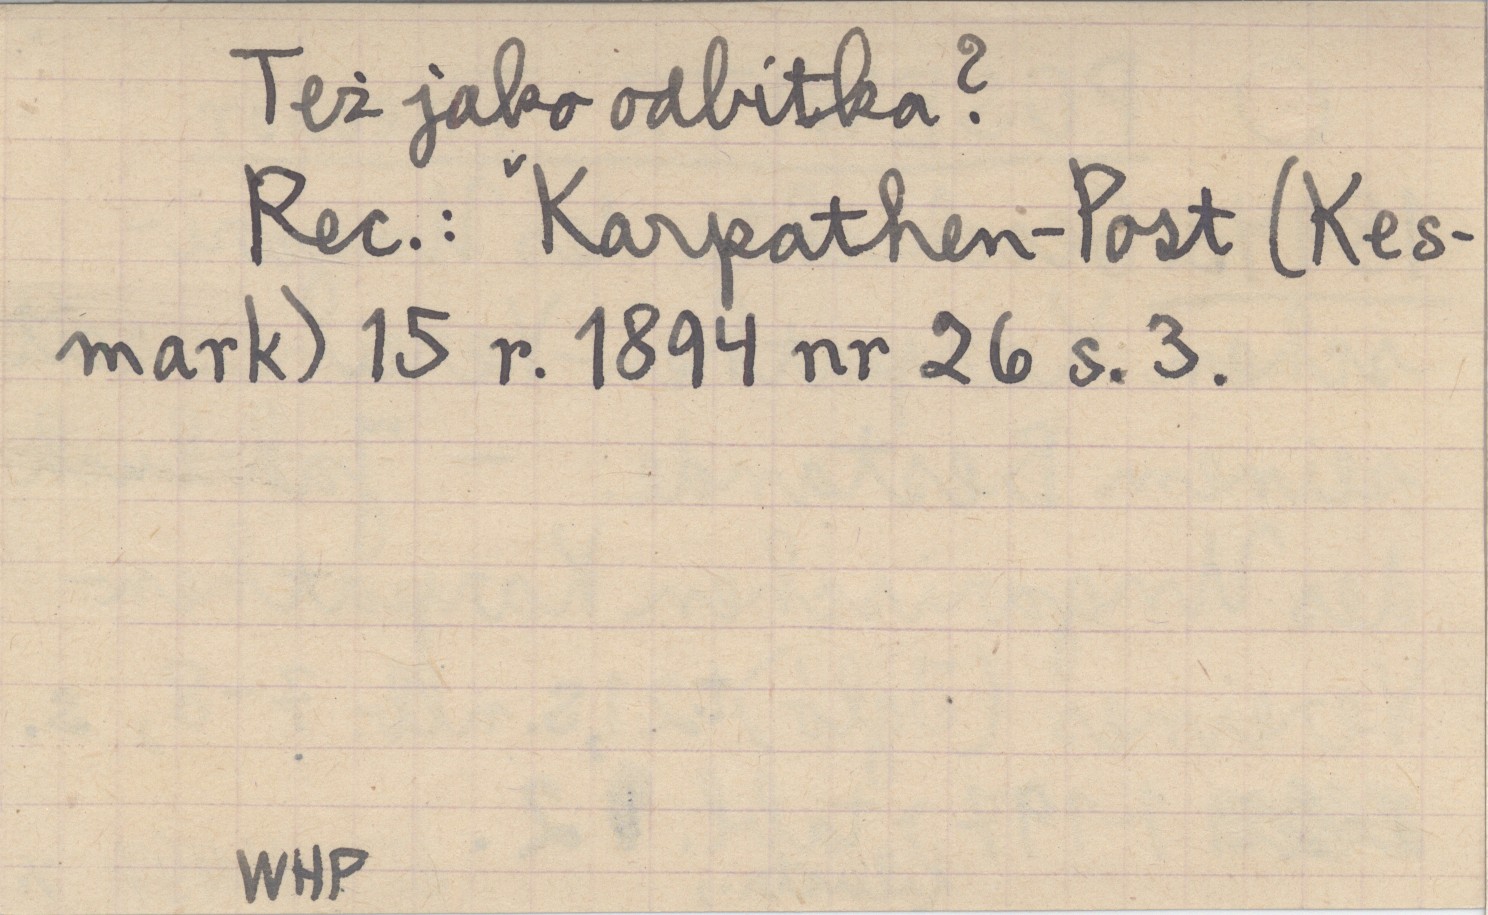 Też jako odbitka?
Rec.: ˇKarpathen-Post (Kes-
mark) 15 r. 1894 nr 26 s. 3.
WHP